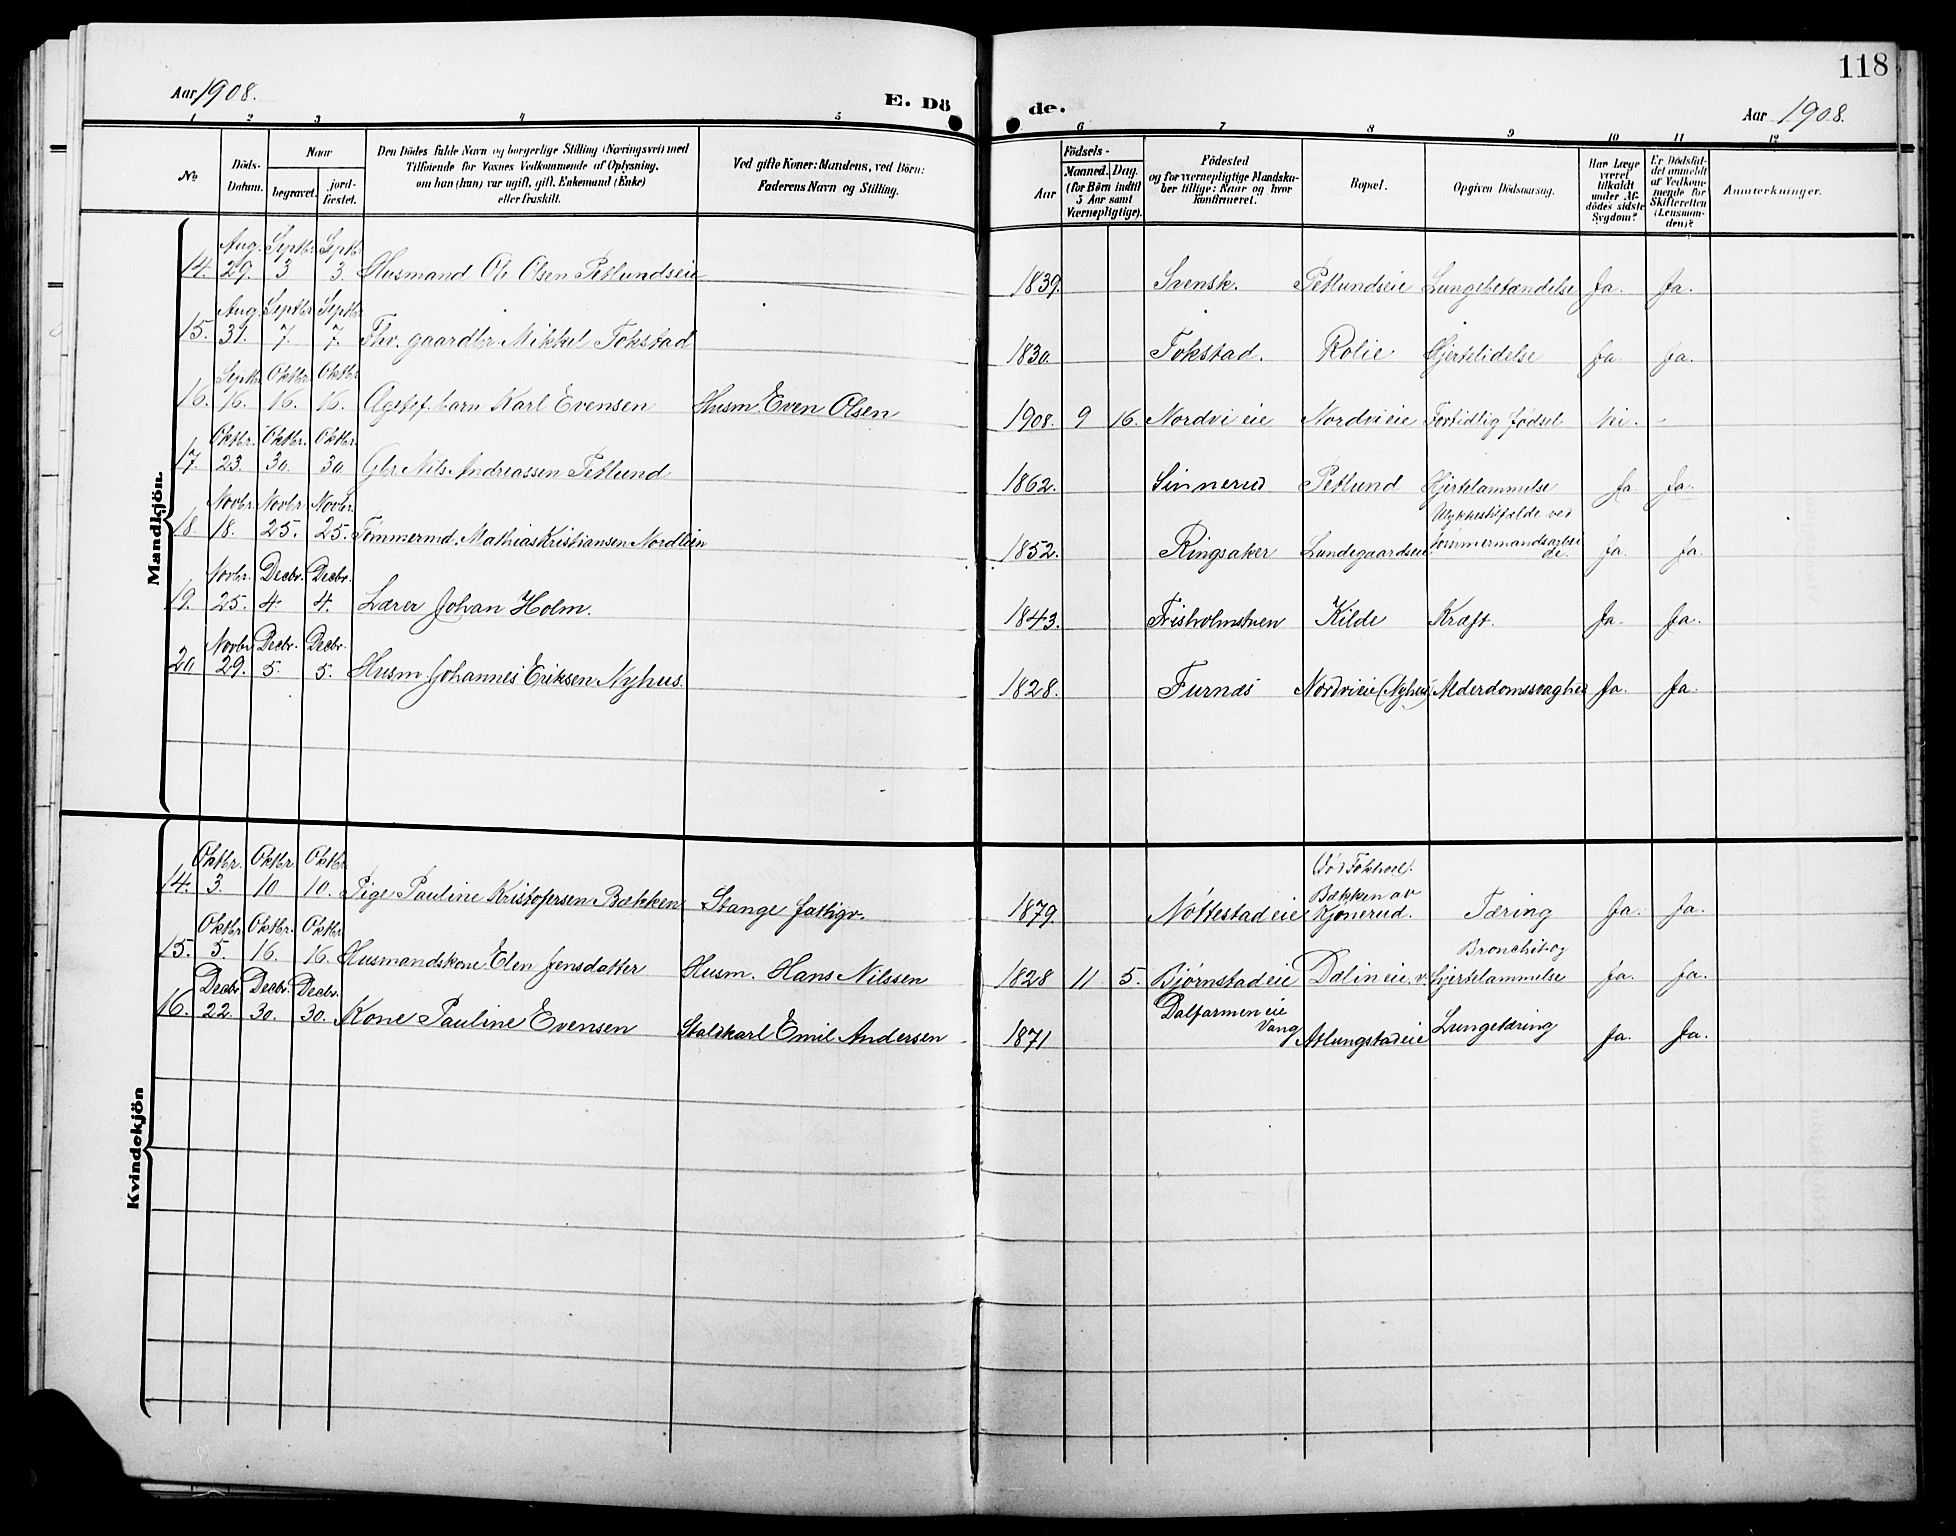 118
Aar 1908.
E. Dö de.
Aar 1908.
1 2 3 4 5 6 7 8 9 10 11 12
No
Döds-Datum.
Naar
begravet.
jord-fæstet.
Den Dödes fulde Navn og borgerlige Stilling (Næringsvei) med
Tilföiende for Voxnes Vedkommende af Oplysning,
om han (hun) var ugift, gift, Enkemand (Enke)
eller fraskilt.
Ved gifte Koner: Mandens, ved Börn:
Faderens Navn og Stilling.
Födsels-
Aar
Maaned. Dag.
(for Börn indtil
5 Aar samt
Værnepligtige).
Födested
og for værnepligtige Mandska-
ber tillige: Naar og hvor
konfirmeret.
Bopæl.
Opgiven Dödsaarsag.
Har Læge
været
tilkaldt
under Af-
dödes sidste
Sygdom?
Er Dödsfal-
det anmeldt
af Vedkom-
mende for
Skifteretten
(Lensman-
den)?
Anmærkninger.
Mandkjön.
14. Aug. 29. Septbr. 3 Septbr. 3. Husmand Ole Olsen Petlundseie 1839. Svensk. Petlundseie Lungebetændelse Ja. Ja.
15. Aug. 31. Septbr 7. Septbr. 7. Fhv. gaardbr Mikkel Tokstad 1830. Tokstad. Rolie Hjertelidelse Ja Ja.
16. Septbr. 16. Oktbr. 16. Oktbr. 16. Ægtef. barn Karl Evensen Husm. Even Olsen 1908. 9 16. Nordvi eie Nordvieie Fortidlig fødsel Nei. -
17. Oktbr. 23. Oktbr. 30. Oktbr. 30. Gbr Nils Andreassen Petlund 1862. Sinnerud Petlund Hjertelammelse Ja. Ja.
18. Novbr. 18. Novbr. 25. Novbr. 25. Tømmermd. Mathias Kristiansen Nordlien 1852. Ringsaker Lundegaardseie Ulykkestilfælde ved tømmermandsarbeide Ja. Ja.
19. Novbr. 25. Decbr. 4. Decbr. 4. Lærer Johan Holm. 1843. Frisholmstuen Kilde Kræft. Ja. Ja.
20 Novbr. 29. Decbr. 5. Decbr. 5. Husm Johannes Eriksen Nyhus. 1828. Furnæs Nordvieie (Nyhus) Alderdomssvaghed Ja. Ja.
Kvindekjön
14. Oktbr. 3. Oktbr 10 Oktbr. 10. Pige Pauline Kristofersen Bækken Stange fattigv. 1879. Nøttestadeie Bækken av Kjonerud. Tæring Ja. Ja.
15. Oktbr 5. Oktbr. 16. Oktbr. 16. Husmandskone Elen Jensdatter Husm. Hans Nilssen 1828 11 5. Bjørnstadeie Dalineie. v. Bronchit og Hjertelammelse Ja. Ja.
16. Decbr. 22. Decbr. 30. Decbr. 30. Kone Pauline Evensen Staldkarl Emil Andersen 1871 Dalfarmeneie Vang Atlungstadeie Lungetæring Ja. Ja.